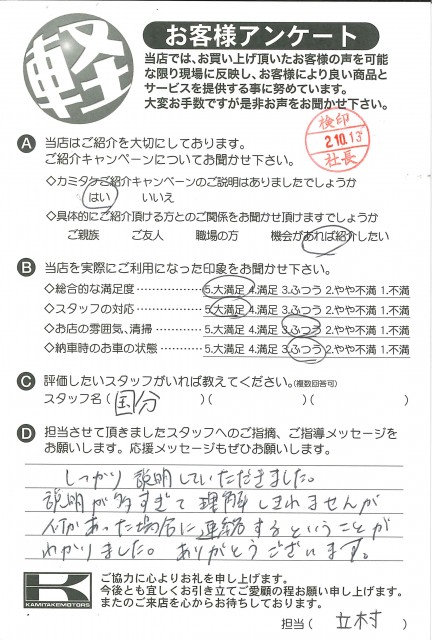 軽
お客様アンケート
当店では、お買い上げ頂いたお客様の声を可能
な限り現場に反映し、お客様により良い商品と
サービスを提供する事に努めています。
大変お手数ですが是非お声をお聞かせ下さい。
検印
2.10.13
社長
A 当店はご紹介を大切にしております。
ご紹介キャンペーンについてお聞かせ下さい。
◇カミタケご紹介キャンペーンのご説明はありましたでしょうか
はい いいえ
◇具体的にご紹介頂ける方とのご関係をお聞かせ頂けますでしょうか
ご親族 ご友人 職場の方 機会があれば紹介したい
B 当店を実際にご利用になった印象をお聞かせ下さい。
◇総合的な満足度………… 5.大満足 4.満足 3.ふつう 2.やや不満 1.不満
◇スタッフの対応………… 5.大満足 4.満足 3.ふつう 2.やや不満 1.不満
◇お店の雰囲気、清掃…… 5.大満足 4.満足 3.ふつう 2.やや不満 1.不満
◇納車時のお車の状態…… 5.大満足 4.満足 3.ふつう 2.やや不満 1.不満
C 評価したいスタッフがいれば教えてください。(複数回答可)
スタッフ名( 国分 )( )( )
D 担当させて頂きましたスタッフへのご指摘、ご指導メッセージを
お願いします。応援メッセージもぜひお願いします。
しっかり説明していただきました。
説明が多すぎて理解しきれませんが
何かあった場合に連絡するということが
わかりました。ありがとうございます。
K
KAMITAKEMOTORS
ご協力に心よりお礼を申し上げます。
今後とも宜しくお引き立てご愛顧の程お願い申し上げます。
またのご来店を心からお待ちしております。
担当( 立木寸 )